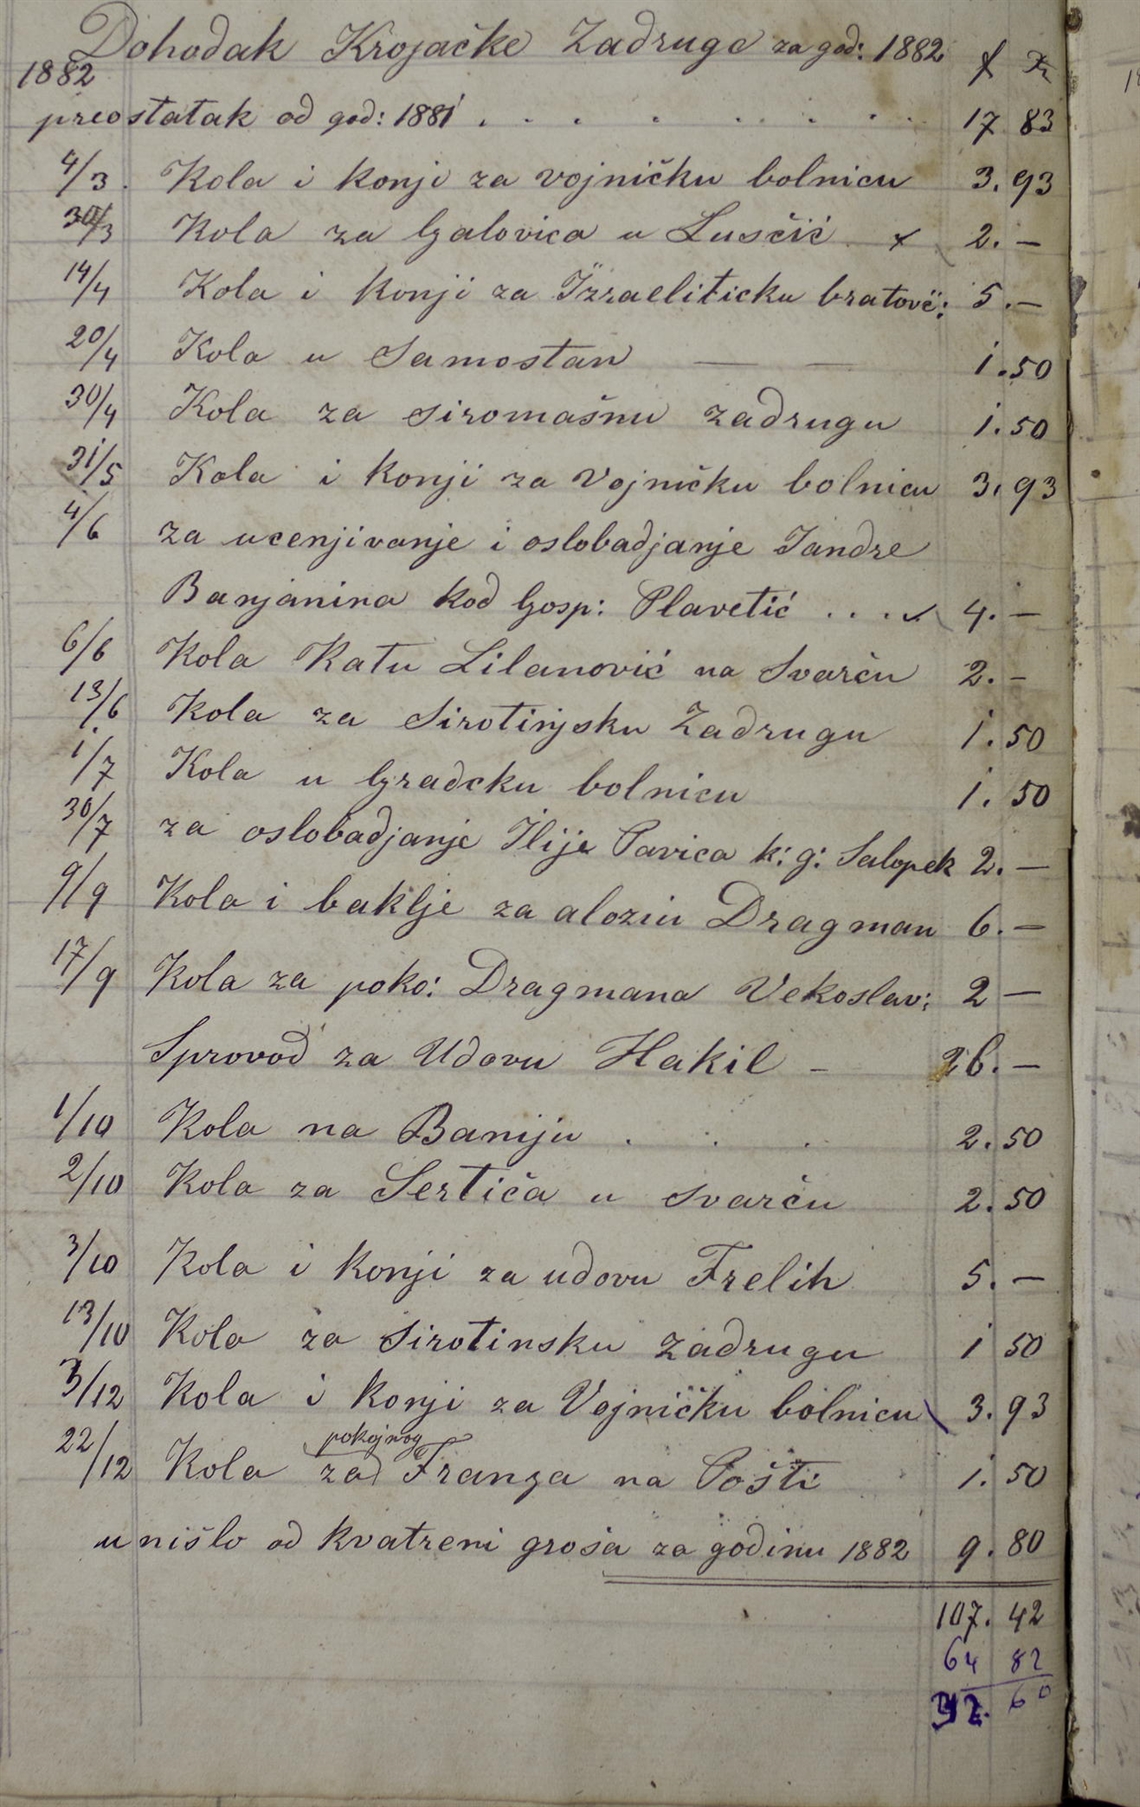 Dohodak Krojačke Zadruge za god: 1882 f kr
1882
preostatak od god: 1881 . . . . . . . . 17 83
4/3 Kola i konji za vojničku bolnicu 3. 93
30/3 Kola za Galovica u Lusčić x 2. —
14/4 Kola i konji za Izraeliticku bratovč: 5. —
20/4 Kola u Samostan — — 1. 50
30/4 Kola za siromašnu zadrugu 1. 50
31/5 Kola i konji za Vojničku bolnicu 3. 93
4/6 za ucenjivanje i oslobadjanje Jandre
Banjanina kod Gosp: Plavetić . . . . 4. —
6/6 Kola Katu Lilanović na Svarču 2. —
13/6 Kola za Sirotinjsku Zadrugu 1. 50
1/7 Kola u Gradcku bolnicu 1. 50
30/7 za oslobadjanje Ilije Pavica k: g: Salopek 2. —
9/9 Kola i baklje za aloziu Dragman 6. —
17/9 Kola za poko: Dragmana Vekoslav: 2 —
Sprovod za Udovu Hakil – 26. —
1/10 Kola na Baniju . . . 2. 50
2/10 Kola za Sertića u Svarču 2. 50
3/10 Kola i konji za udovu Frelih 5. —
13/10 Kola za sirotinsku zadrugu 1 50
3/12 Kola i konji za Vojničku bolnicu 3. 93
pokojnog
22/12 Kola za Franza na Pošti 1. 50
unišlo od kvatreni groša za godinu 1882 9. 80
107. 42
64 82
42. 60